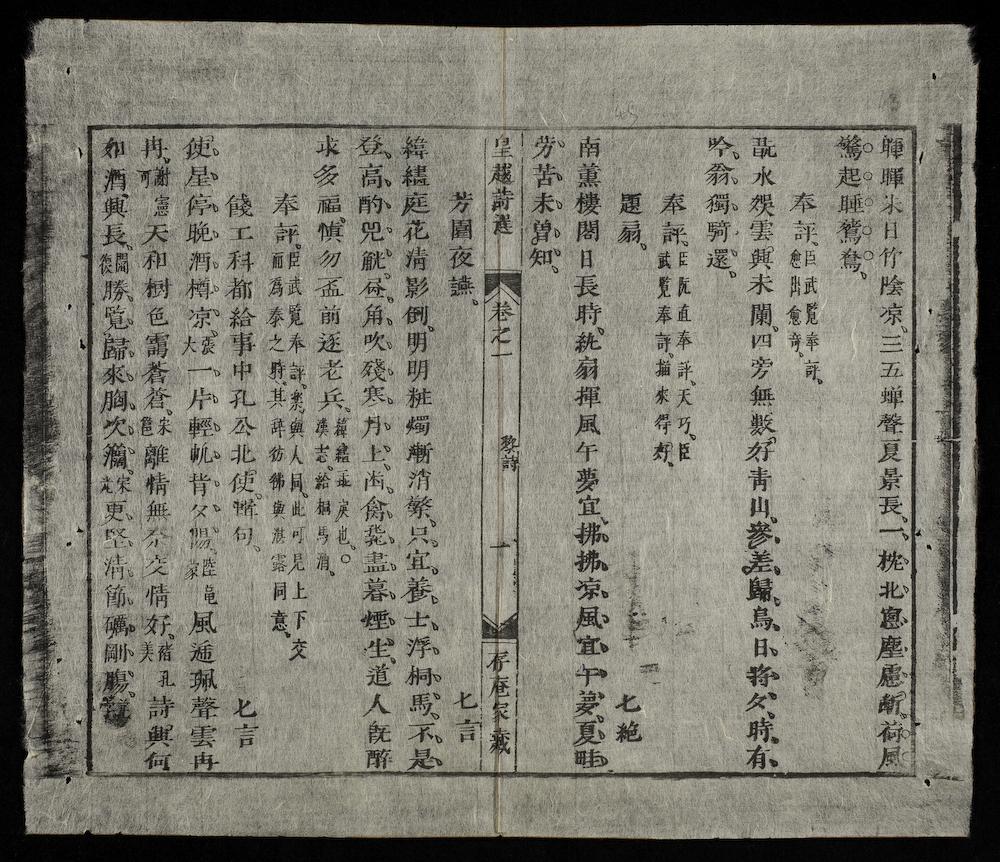 暉暉朱日竹陰凉三五蟬聲夏景長一枕北窓塵慮斷荷風
驚起睡鴛鴦
奉評臣武覽奉評愈出愈竒
翫水娛雲興未闌四旁無數好青山參差歸鳥日將夕時有
吟翁獨騎還
奉評臣阮直奉評天巧臣武覽奉評描來得好
題扇 七絶
南薰樓閣日長時紈扇揮風午夢宜拂拂凉風宜午夢夏畦
勞苦未曽知
皇越詩選 卷之一 黎詩 一 存庵家藏
芳園夜讌 七言
緯繣庭花清影倒明明粧燭漸消繁只宜養士浮桐馬不是
登高酌兕觥
角吹殘寒月上
禽飛盡暮煙生道人既醉
求多福慎勿盃前逐老兵緯繣乖戾也漢志給桐馬酒
奉評臣武覽奉評樂與人同此可見上下交而為泰之時其辞彷彿與湛露同意
餞工科都給事中孔公北使聯句 七言
使星停晚酒樽凉張大一片輕帆背夕陽陸
風逓珮聲雲冉
冉謝可憲天和樹色靄蒼蒼宋
離情無奈交情好
美詩興何
如酒興長閻復勝覽歸來胸次濶宋
更堅清節礪剛腸